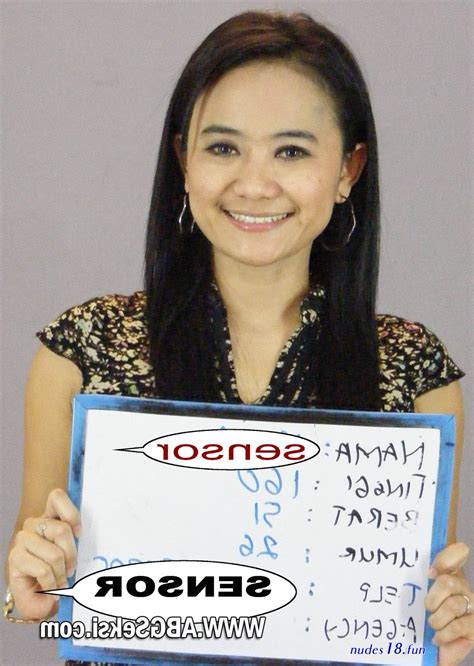 NAMA : sensor
TINGGI : 160
BERAT : 51
UMUR : 26
TELP : SENSOR
AGENCY :
WWW.ABGSeksi.com
nudes18.fun